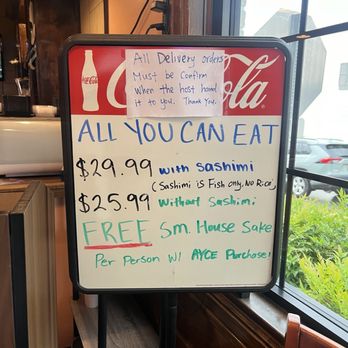 All Delivery orders
Must be Confirm
When the host hand
it to you. Thank You.
Coca-Cola
ALL YOU CAN EAT
$29.99 with Sashimi
(Sashimi is Fish only, No Rice)
$25.99 Without Sashimi
FREE Sm. House Sake
Per Person W/ AYCE Purchase!